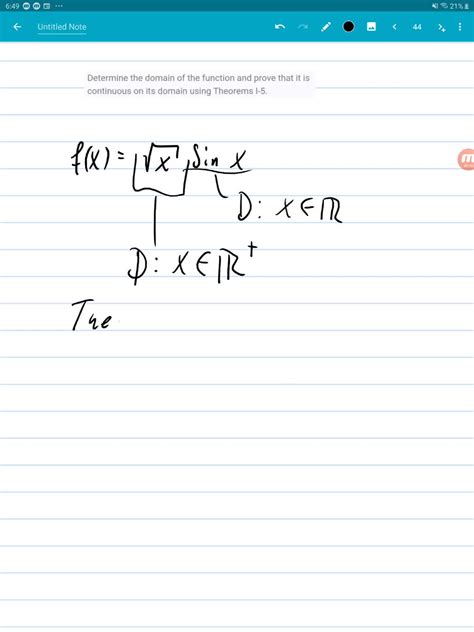 6:49 21%
Untitled Note 44
Determine the domain of the function and prove that it is
continuous on its domain using Theorems I-5.
f(x) = √x sin x
D: x ∈ ℝ
D: x ∈ ℝ⁺
The